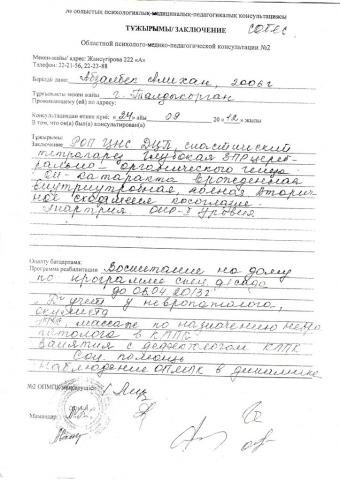 № областық психологиялық-медициналық-педагогикалық консультациясы
ТҰЖЫРЫМЫ/ЗАКЛЮЧЕНИЕ собес
Областной психолого-медико-педагогической консультации №2
Мекен-жайы/ адрес: Жансугірова 222 «А»
Телефон: 22-21-56, 22-23-88
Берілді дана: Алихан, 2006 г
Тұрғылықты мекен жайы г. Талдыкорган
Проживающему (ей) по адресу:
Консультациядан өткен күні «24» айы 09 20 12 жылы
В том, что он(а) был(а) консультирован(а)
Тұжырымы:
Заключение РОП ЦНС ДЦП, спастический
тетрапарез Глубокая ЗПР цереб-
рально-органического генеза.
OU-катаракта врожденная
внутриутробная, полная вторич-
ное сходящееся косоглазие.
Анартрия ОНР-I уровня
Оңалту бағдарлама:
Программа реабилитации Воспитание на дому
по программе спец. д/сада
до 06.04 2013г
"Д" учет у невропатолога,
окулиста
ЛФК, массаж по назначению невро
патолога в КППК
Занятия с дефектологом КППК
Соц. помощь
Наблюдение ОПМПК в динамике
№2 ОПМПК
Мамандар: